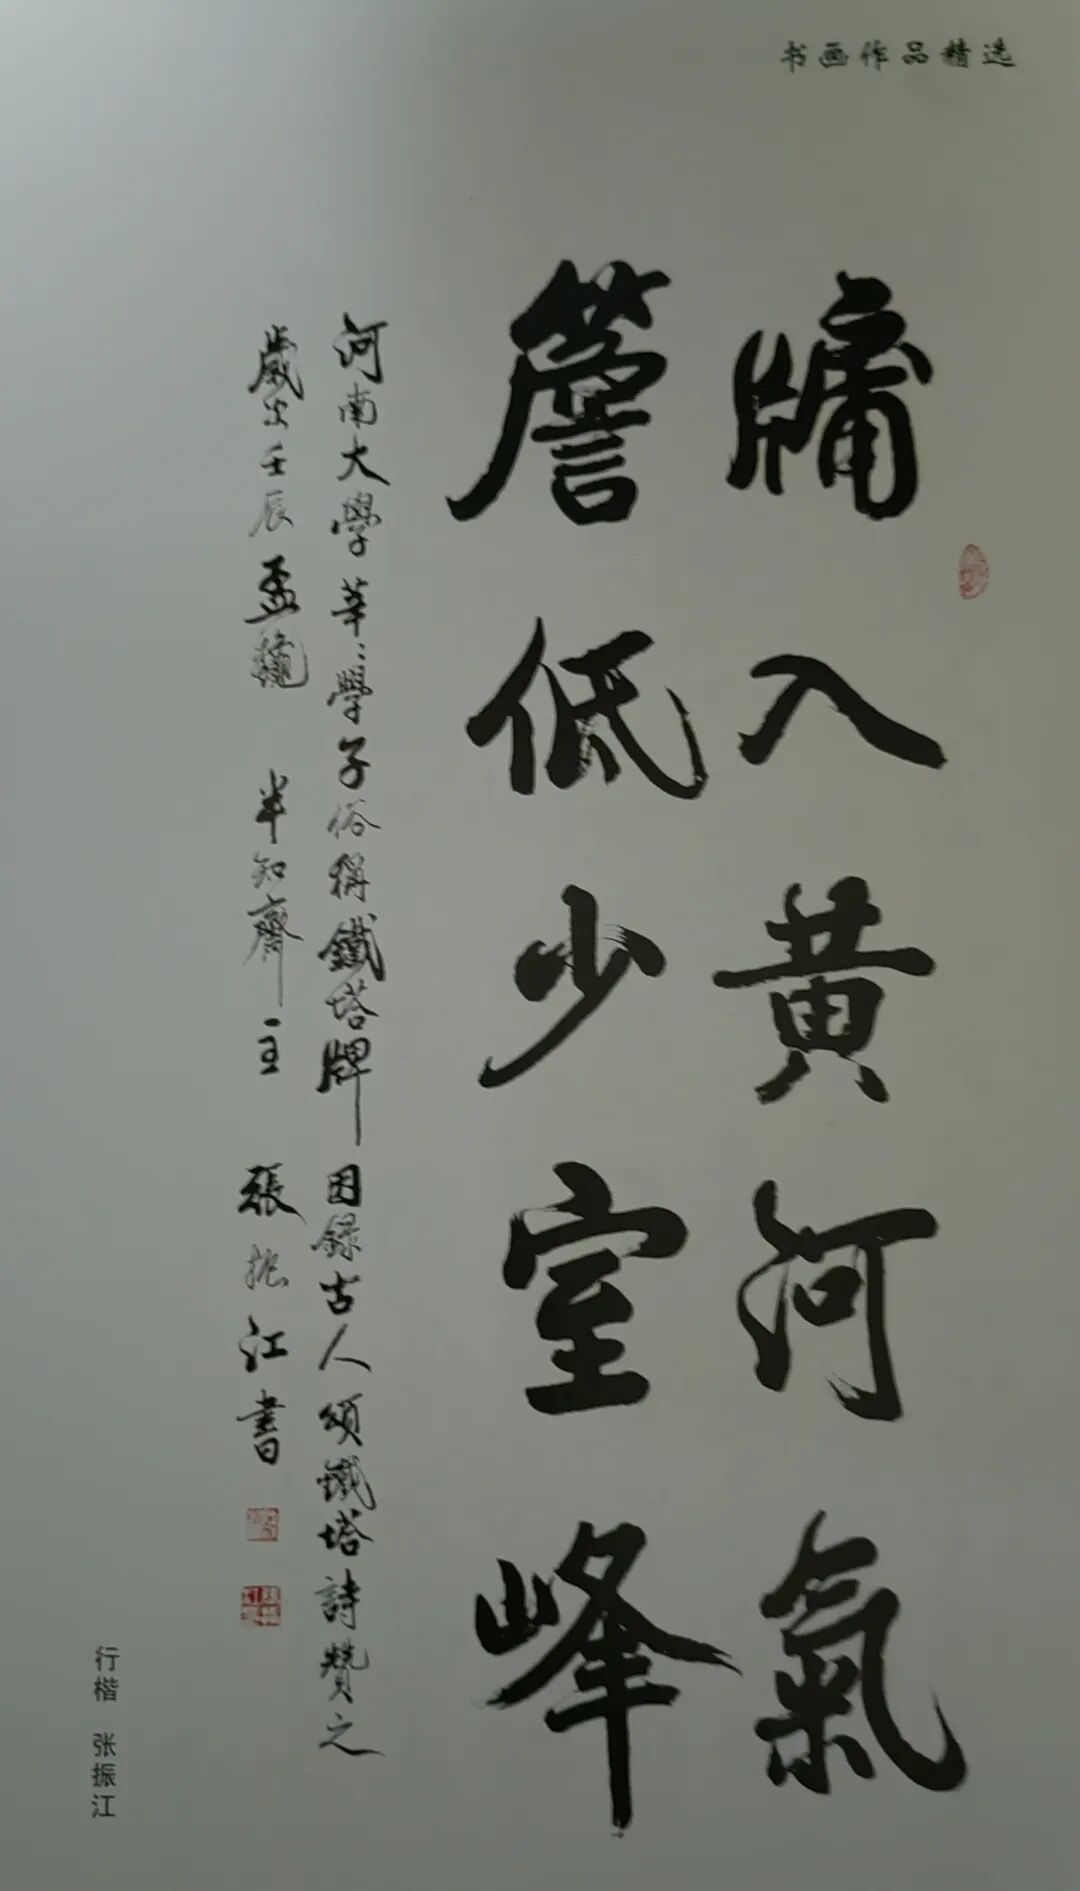 书画作品精选
牖入黄河氣
簷低少室峰
河南大學莘〻學子俗稱鐵塔牌因録古人頌鐵塔詩贊之
歲次壬辰孟龝 半知齋主 張振江書
行楷 张振江